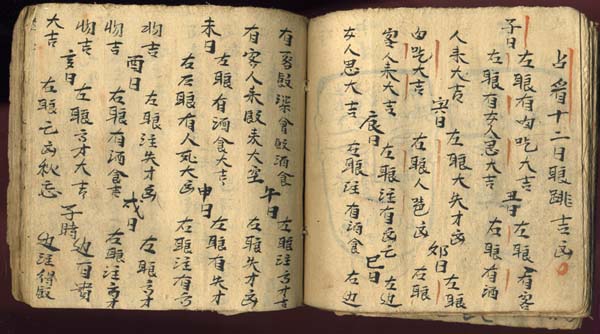 占看十二日眼跳吉凶
子日 左眼有肉吃大吉 丑日 左眼有客
右眼有女人思大吉 右眼有酒
人来大吉 左眼大失才凶 左眼
肉吃大吉 寅日 右眼人凶 卯日 右眼
客人来大吉 左眼注有凶亡 左边
女人思大吉 辰日 右眼注有酒食 巳日 右边
有一客 會 酒食 左眼注方才吉
有客人来 大空 午日 右眼有失才凶
未日 左眼有酒食大吉 左眼有失才凶
右眼有人死大凶 申日 右眼注有方
物吉 酉日 左眼注失才凶 左眼方才
物吉 右眼有酒食 戌日 右眼注方才
物吉 亥日 左眼方才大吉 边有貴
大吉 右眼亡凶秋忌 子時 边注得